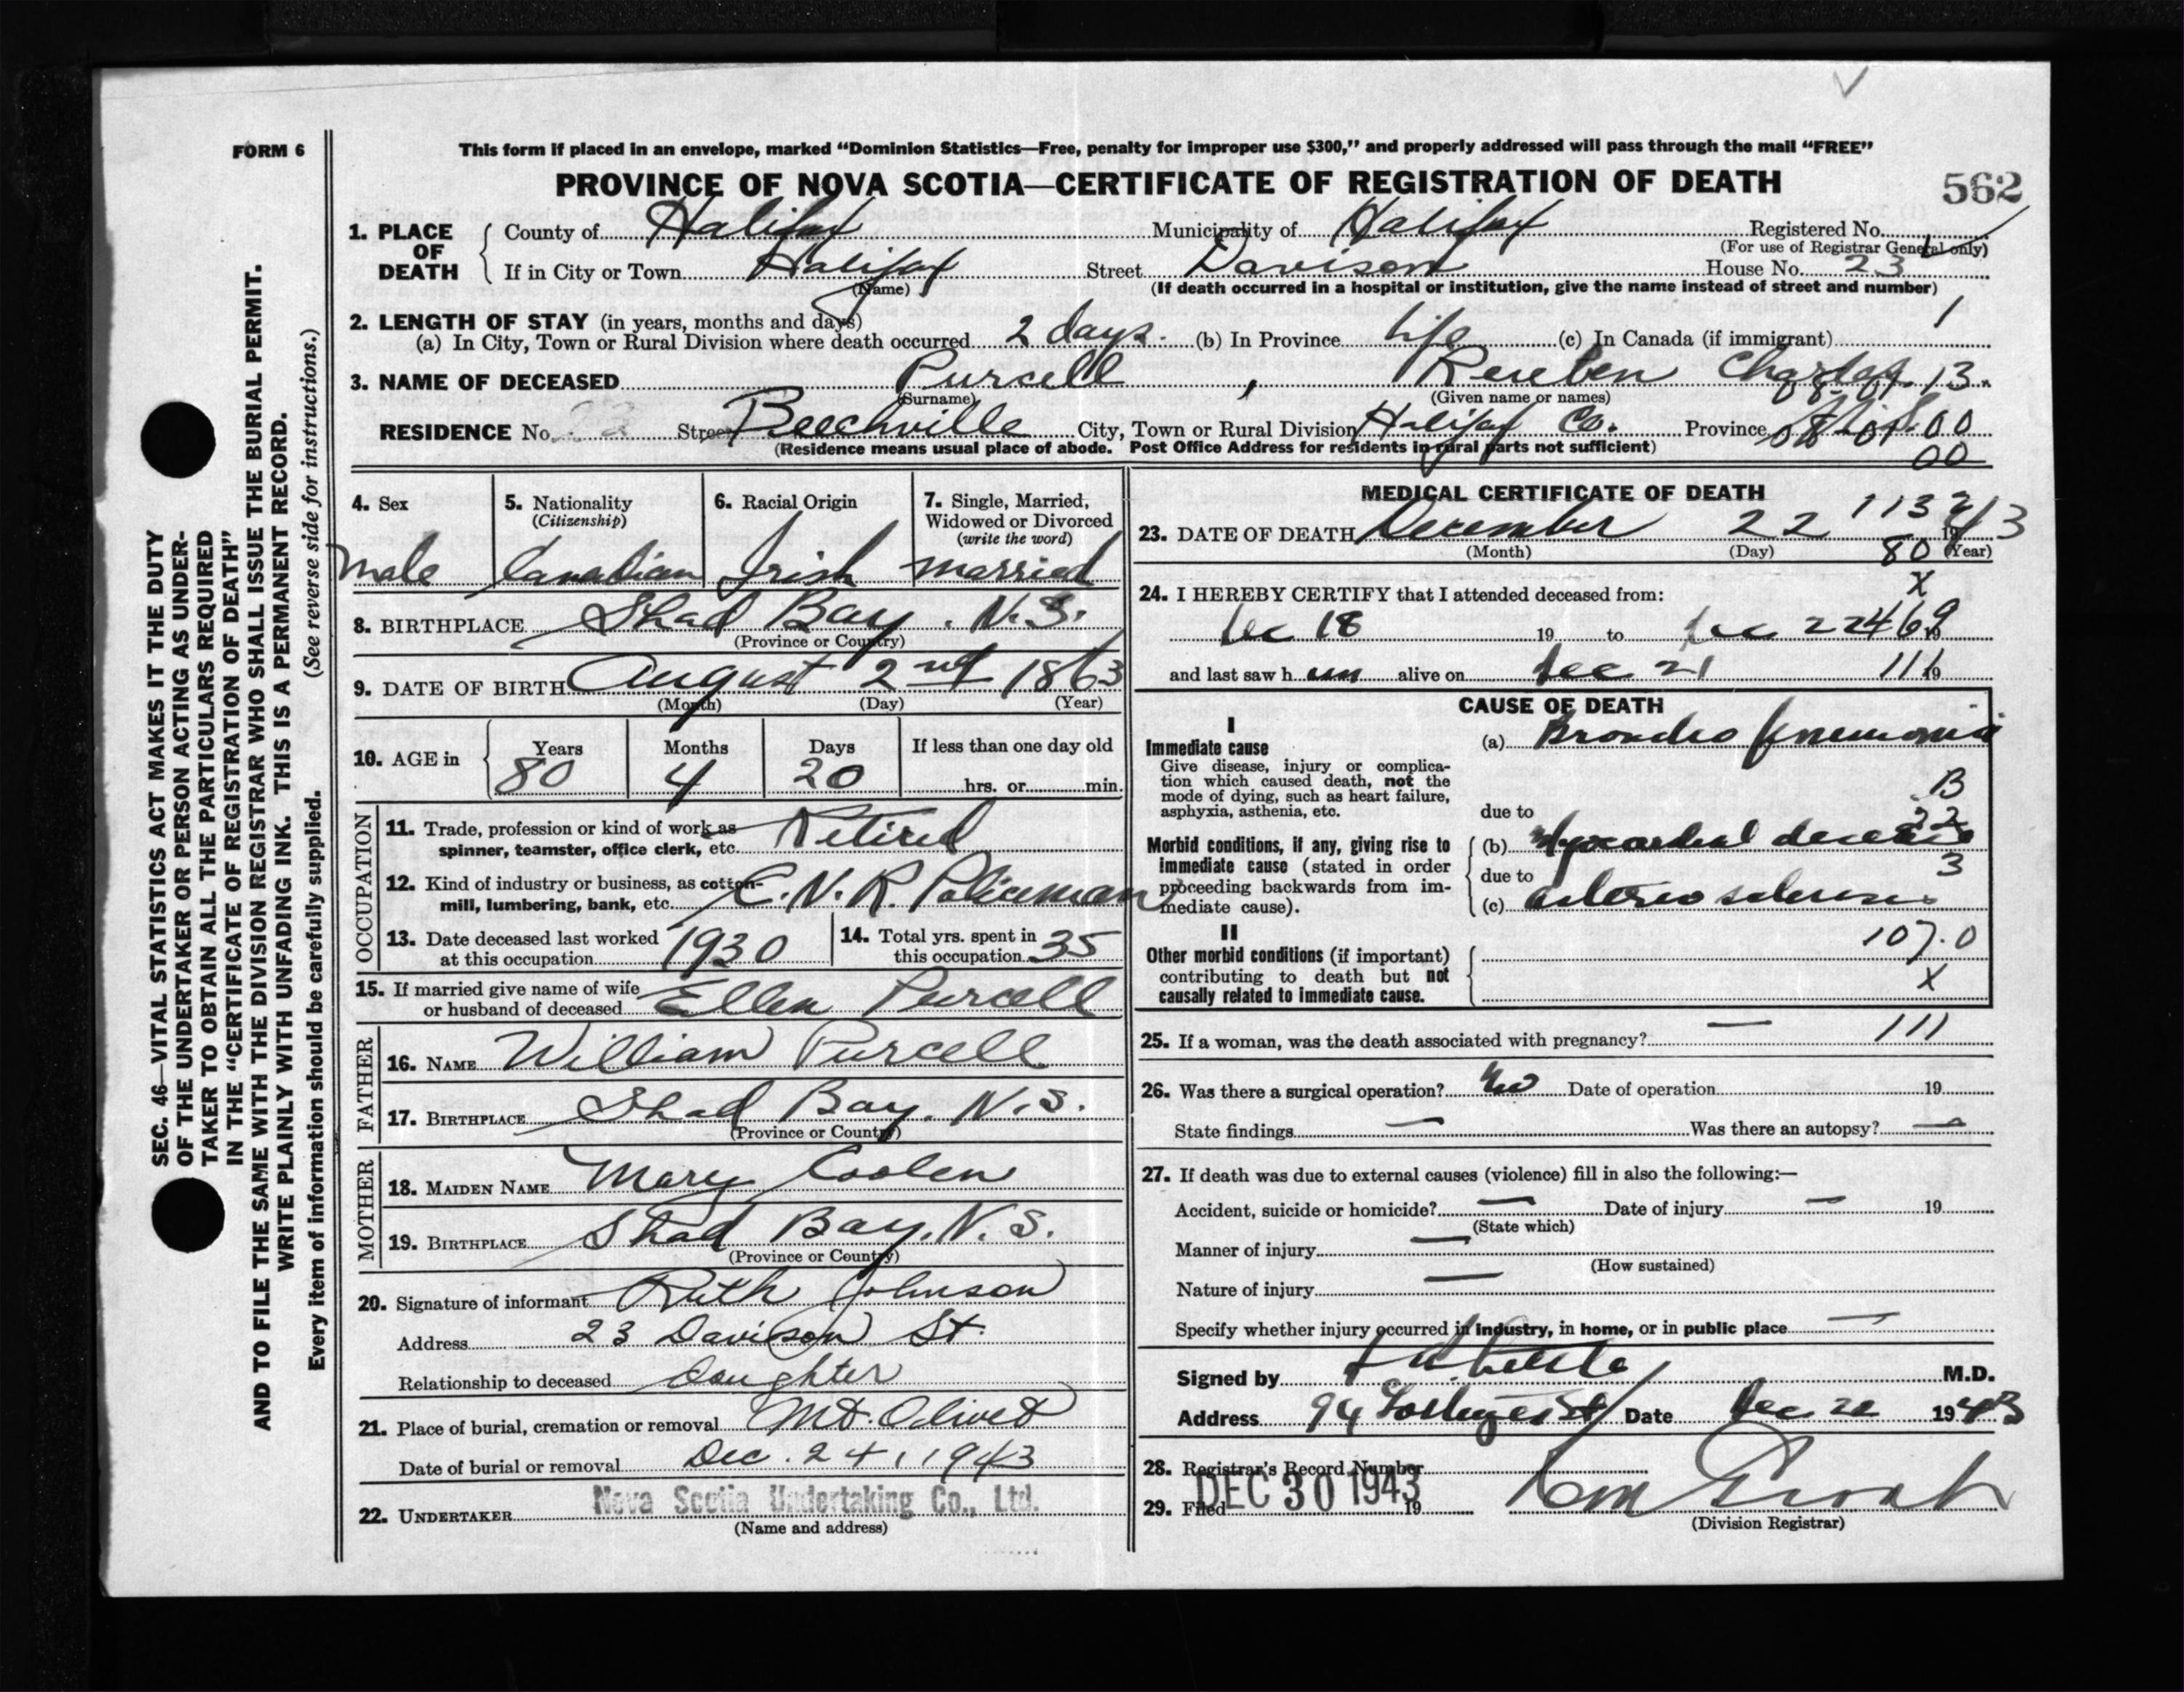 FORM 6
This form if placed in an envelope, marked “Dominion Statistics—Free, penalty for improper use $300,” and properly addressed will pass through the mail “FREE”
PROVINCE OF NOVA SCOTIA—CERTIFICATE OF REGISTRATION OF DEATH 562
1. PLACE OF DEATH
County of Halifax Municipality of Halifax Registered No.
(For use of Registrar General only)
If in City or Town Halifax Street Davison House No. 23
(Name) (If death occurred in a hospital or institution, give the name instead of street and number)
2. LENGTH OF STAY (in years, months and days) 1
(a) In City, Town or Rural Division where death occurred 2 days. (b) In Province life (c) In Canada (if immigrant)
3. NAME OF DECEASED Purcell , Reuben 13.
(Surname) (Given name or names)
RESIDENCE No. 23 Street Beechville City, Town or Rural Division Halifax Co. Province 00
(Residence means usual place of abode. Post Office Address for residents in rural parts not sufficient) 00
4. Sex
male
5. Nationality
(Citizenship)
Canadian
6. Racial Origin
Irish
7. Single, Married,
Widowed or Divorced
(write the word)
married
8. BIRTHPLACE Shad Bay. N.S.
(Province or Country)
9. DATE OF BIRTH August 2nd 1863
(Month) (Day) (Year)
10. AGE in
Years Months Days If less than one day old
80 4 20 hrs. or min.
OCCUPATION
11. Trade, profession or kind of work as
spinner, teamster, office clerk, etc. Retired
12. Kind of industry or business, as cotton-
mill, lumbering, bank, etc. C.N.R. Policeman
13. Date deceased last worked
at this occupation 1930
14. Total yrs. spent in
this occupation 35
15. If married give name of wife
or husband of deceased Ellen Purcell
FATHER
16. NAME William Purcell
17. BIRTHPLACE Shad Bay. N.S.
(Province or Country)
MOTHER
18. MAIDEN NAME Mary Coolen
19. BIRTHPLACE Shad Bay. N.S.
(Province or Country)
20. Signature of informant Ruth Johnson
Address 23 Davison St.
Relationship to deceased Daughter
21. Place of burial, cremation or removal Mt. Olivet
Date of burial or removal Dec. 24, 1943
22. UNDERTAKER Nova Scotia Undertaking Co., Ltd.
(Name and address)
MEDICAL CERTIFICATE OF DEATH
23. DATE OF DEATH December 22 1943
(Month) (Day) (Year)
80
24. I HEREBY CERTIFY that I attended deceased from: X
Dec 18 19 to Dec 22 469 19
and last saw h im alive on Dec 21 116 19
CAUSE OF DEATH
I
Immediate cause
Give disease, injury or complica-
tion which caused death, not the
mode of dying, such as heart failure,
asphyxia, asthenia, etc.
(a) Broncho pneumonia
B
due to
Morbid conditions, if any, giving rise to
immediate cause (stated in order
proceeding backwards from im-
mediate cause).
(b) Myocardial disease
due to 3
(c) arterio sclerosis
II
Other morbid conditions (if important)
contributing to death but not
causally related to immediate cause.
107.0
X
25. If a woman, was the death associated with pregnancy? — 111
26. Was there a surgical operation? No Date of operation 19
State findings — Was there an autopsy? —
27. If death was due to external causes (violence) fill in also the following:—
Accident, suicide or homicide? — Date of injury — 19
(State which)
Manner of injury —
(How sustained)
Nature of injury —
Specify whether injury occurred in industry, in home, or in public place —
Signed by M.D.
Address 94 St Date Dec 22 1943
28. Registrar's Record Number
29. Filed DEC 30 1943 19
(Division Registrar)
SEC. 46—VITAL STATISTICS ACT MAKES IT THE DUTY
OF THE UNDERTAKER OR PERSON ACTING AS UNDER-
TAKER TO OBTAIN ALL THE PARTICULARS REQUIRED
IN THE “CERTIFICATE OF REGISTRATION OF DEATH”
AND TO FILE THE SAME WITH THE DIVISION REGISTRAR WHO SHALL ISSUE THE BURIAL PERMIT.
WRITE PLAINLY WITH UNFADING INK. THIS IS A PERMANENT RECORD.
Every item of information should be carefully supplied. (See reverse side for instructions.)